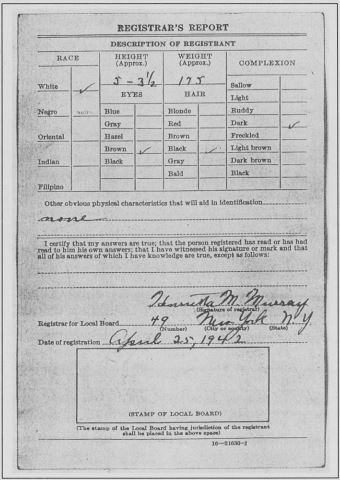 REGISTRAR'S REPORT
DESCRIPTION OF REGISTRANT
RACE
HEIGHT (Approx.)
WEIGHT (Approx.)
COMPLEXION
5-3½
175
White ✓
EYES
HAIR
Sallow
Light
Negro
Blue
Blonde
Ruddy
Gray
Red
Dark ✓
Oriental
Hazel
Brown
Freckled
Brown ✓
Black ✓
Light brown
Indian
Black
Gray
Dark brown
Bald
Black
Filipino
Other obvious physical characteristics that will aid in identification
none
I certify that my answers are true; that the person registered has read or has had
read to him his own answers; that I have witnessed his signature or mark and that
all of his answers of which I have knowledge are true, except as follows:
Henrietta M. Murray
(Signature of registrar)
Registrar for Local Board 49 New York N.Y
(Number) (City or county) (State)
Date of registration April 25, 1942
(STAMP OF LOCAL BOARD)
(The stamp of the Local Board having jurisdiction of the registrant
shall be placed in the above space)
16-21630-2